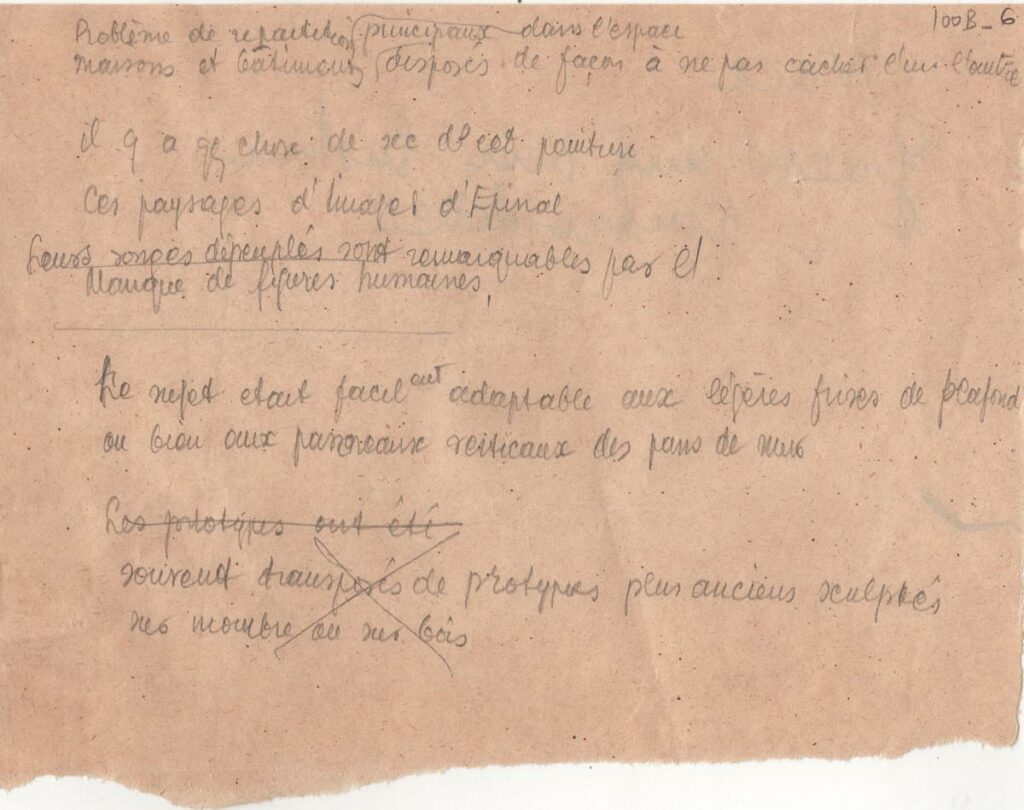 100B-6
Problème de repartition principaux dans l'espace
maisons et bâtiments disposés de façon à ne pas cacher l'un l'autre
il y a qq chose de sec ds cet peinture
Ces paysages d'Images d'Epinal
Leurs songes dépeuplés sont remarquables par el
Manque de figures humaines,
Le sujet etait facil ant adaptable aux légères frises de plafond
ou bien aux panneaux verticaux des pans de mur
Les prototypes ont été
souvent transposés de prototypes plus anciens sculptés
sur ou sur bois